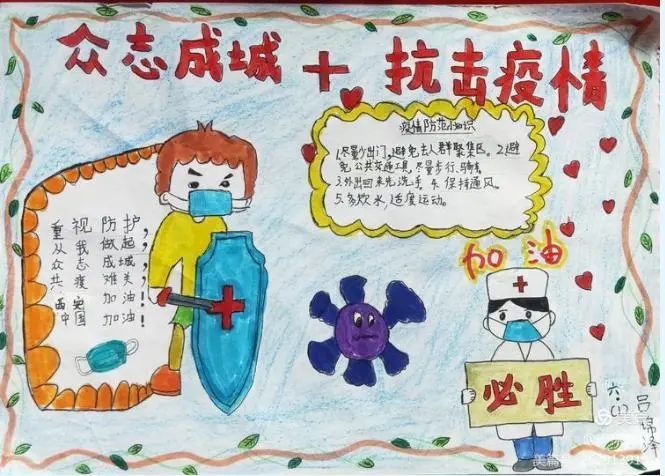 众志成城 抗击疫情
疫情防范小知识
1.尽量少出门,避免去人群聚集区。2.避
免公共交通工具,尽量步行、骑车。
3.外出回来先洗手 4.保持通风。
5.多炊水,适度运动。
重视防护,
从我做起,
众志成城,
共疫难关,
西安加油!
中国加油!
加油
必胜
六.(1)
吕